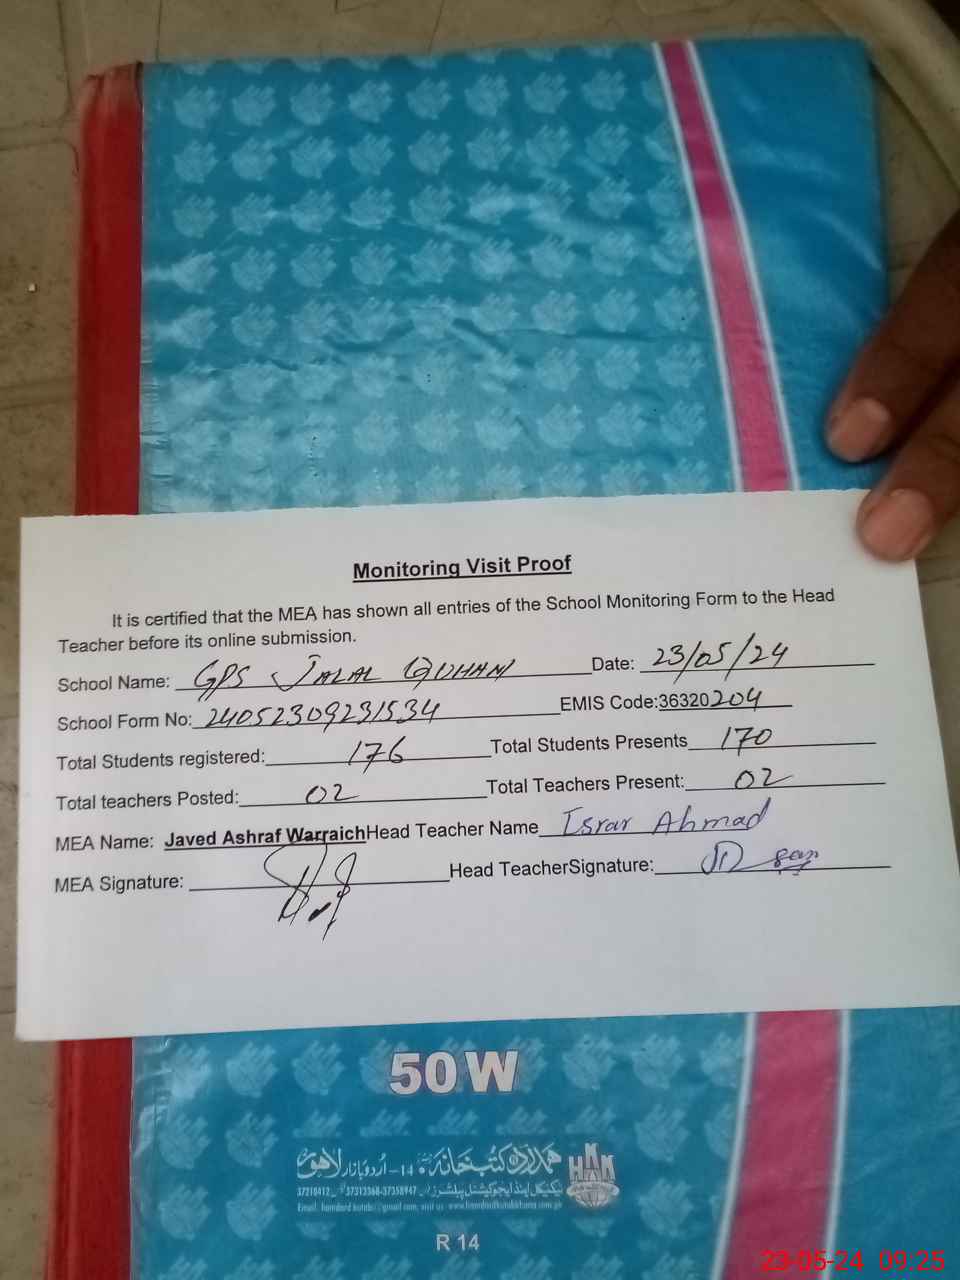 Monitoring Visit Proof
It is certified that the MEA has shown all entries of the School Monitoring Form to the Head
Teacher before its online submission.
School Name: GPS JALAL QUHAN Date: 23/05/24
School Form No: 24052309231534 EMIS Code:36320204
Total Students registered: 176 Total Students Presents 170
Total teachers Posted: 02 Total Teachers Present: 02
MEA Name: Javed Ashraf Warraich Head Teacher Name Israr Ahmad
MEA Signature: Head TeacherSignature:
50 W
ہمدرد کتب خانہ 14-اردو بازار لاہور
HKK
37313368-37358947
R 14
23-05-24 09:25